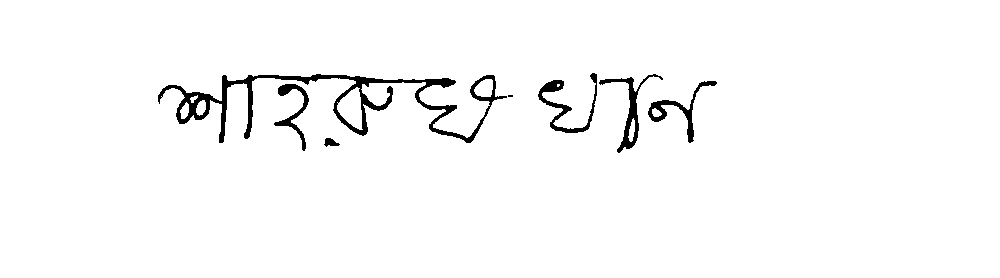 শাহরুখ খান